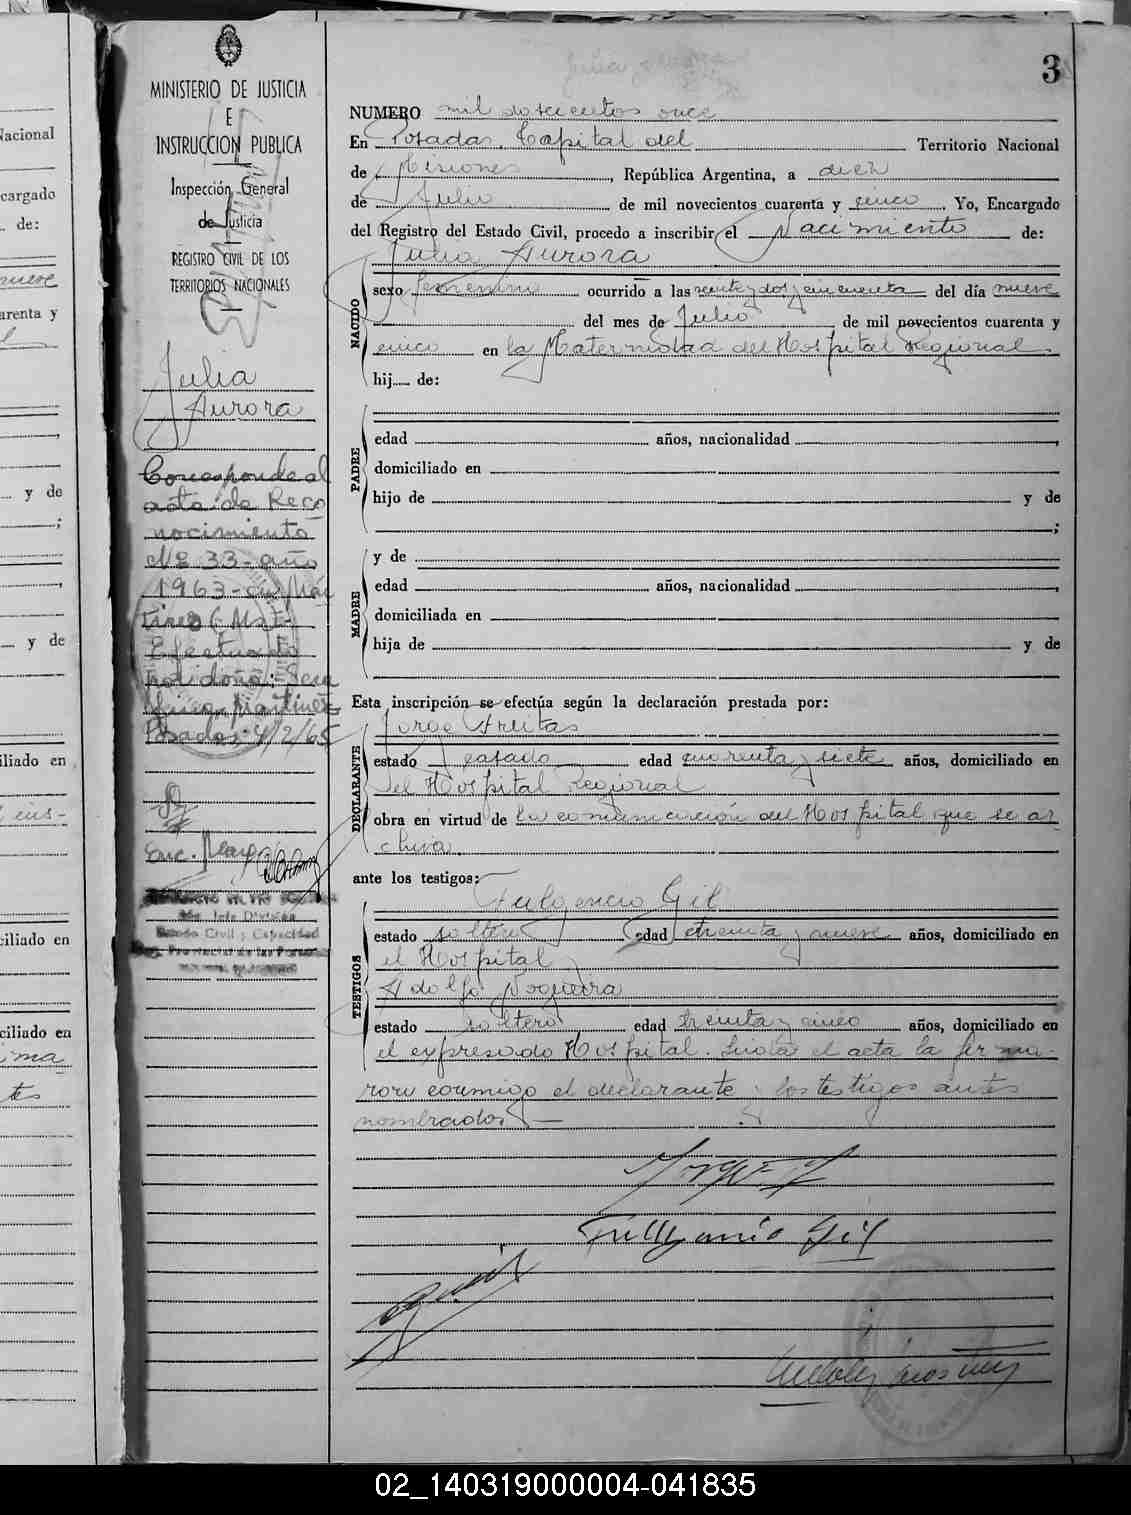 3
MINISTERIO DE JUSTICIA
E
INSTRUCCION PUBLICA
Inspección General
de Justicia
REGISTRO CIVIL DE LOS
TERRITORIOS NACIONALES
Julia
Aurora
Corresponde al
acta de Reco
nocimiento
Nº 33 - año
1963 - en Már
tires (Mts)
Efectuado
por doña: Sera
fina Martinez
Posadas, 4/2/65
Enc.
NUMERO mil doscientos once
En Posadas, Capital del Territorio Nacional
de Misiones, República Argentina, a diez
de Julio de mil novecientos cuarenta y cinco. Yo, Encargado
del Registro del Estado Civil, procedo a inscribir el Nacimiento de:
Julia Aurora
NACIDO
sexo femenino ocurrido a las veinte y dos y cincuenta del día nueve
del mes de Julio de mil novecientos cuarenta y
cinco en la Maternidad del Hospital Regional.
hij de:
PADRE
edad años, nacionalidad ,
domiciliado en
hijo de y de
;
MADRE
y de
edad años, nacionalidad
domiciliada en
hija de y de
Esta inscripción se efectúa según la declaración prestada por:
DECLARANTE
Jorge Freitas
estado casado edad cuarenta y siete años, domiciliado en
el Hospital Regional
obra en virtud de la comunicación del Hospital que se ar
chiva.
ante los testigos:
TESTIGOS
Fulgencio Gil
estado soltero edad treinta y nueve años, domiciliado en
el Hospital y
Adolfo Nogueira
estado soltero, edad treinta y cinco años, domiciliado en
el expresado Hospital. Leida el acta la firma-
ron conmigo el declarante y los testigos antes
nombrados —
Fulgencio Gil
Nacional
cargado
de:
nueve
arenta y
y de
;
y de
iliado en
ciliado en
ciliado en
02_140319000004-041835